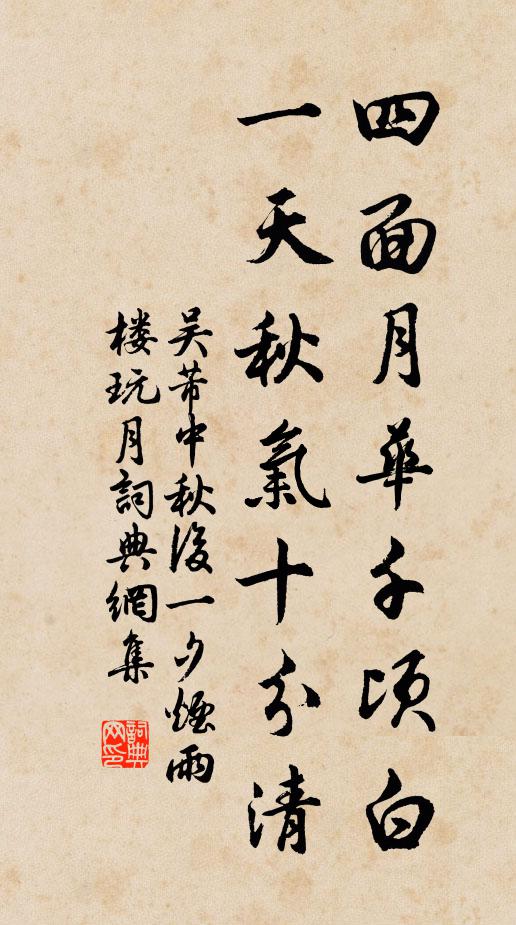 四面月華千頃白
一天秋氣十分清
吴芾中秋後一夕煙雨
楼玩月詞典網集
詞典網印